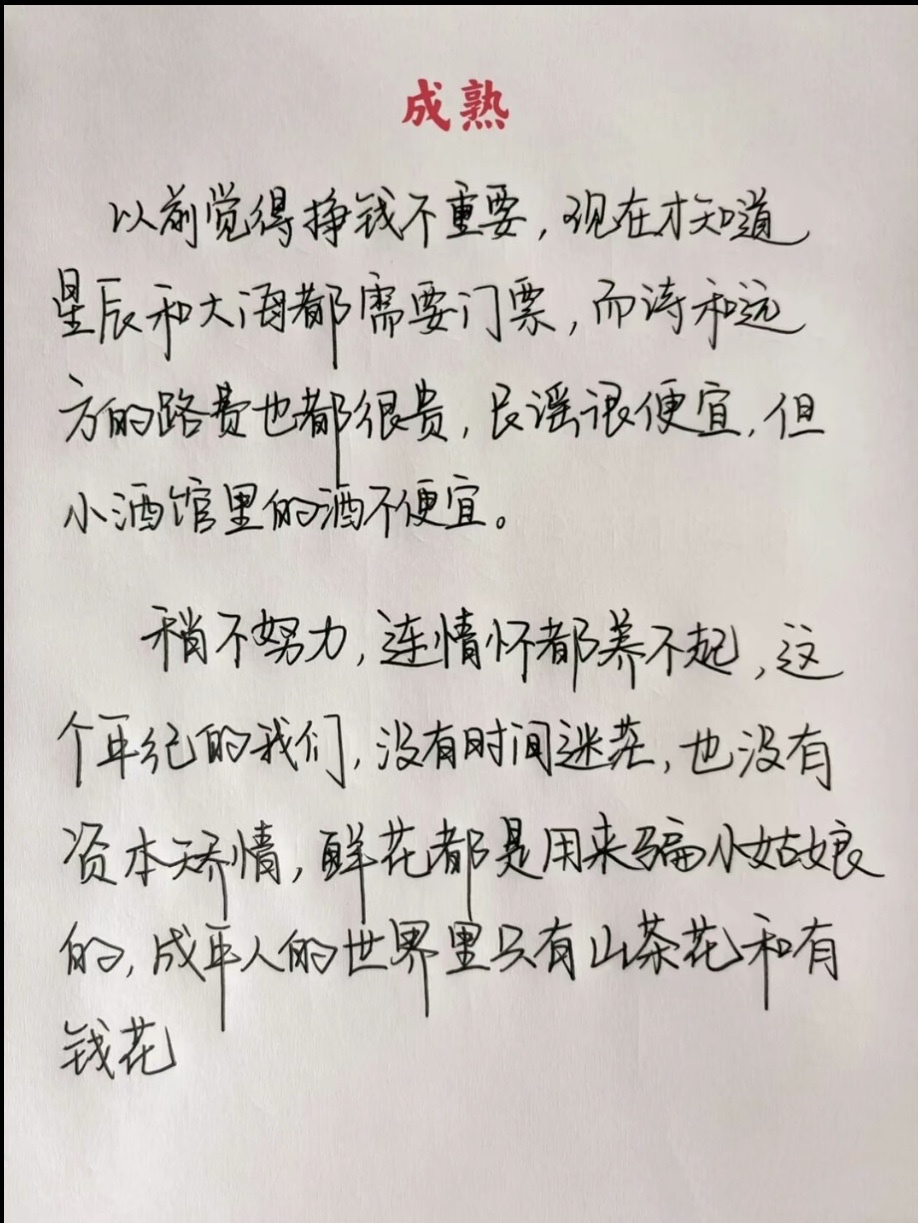 成熟
以前觉得挣钱不重要，现在才知道
星辰和大海都需要门票，而诗和远
方的路费也都很贵，民谣很便宜，但
小酒馆里的酒不便宜。
稍不努力，连情怀都养不起，这
个年纪的我们，没有时间迷茫，也没有
资本矫情，鲜花都是用来骗小姑娘
的，成年人的世界里只有山茶花和有
钱花